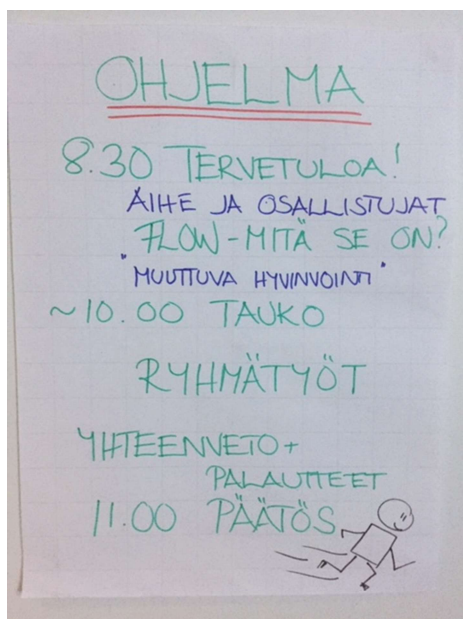 OHJELMA
8.30 TERVETULOA!
AIHE JA OSALLISTUJAT
FLOW - MITÄ SE ON?
"MUUTTUVA HYVINVOINTI"
~10.00 TAUKO
RYHMÄTYÖT
YHTEENVETO +
PALAUTTEET
11.00 PÄÄTÖS